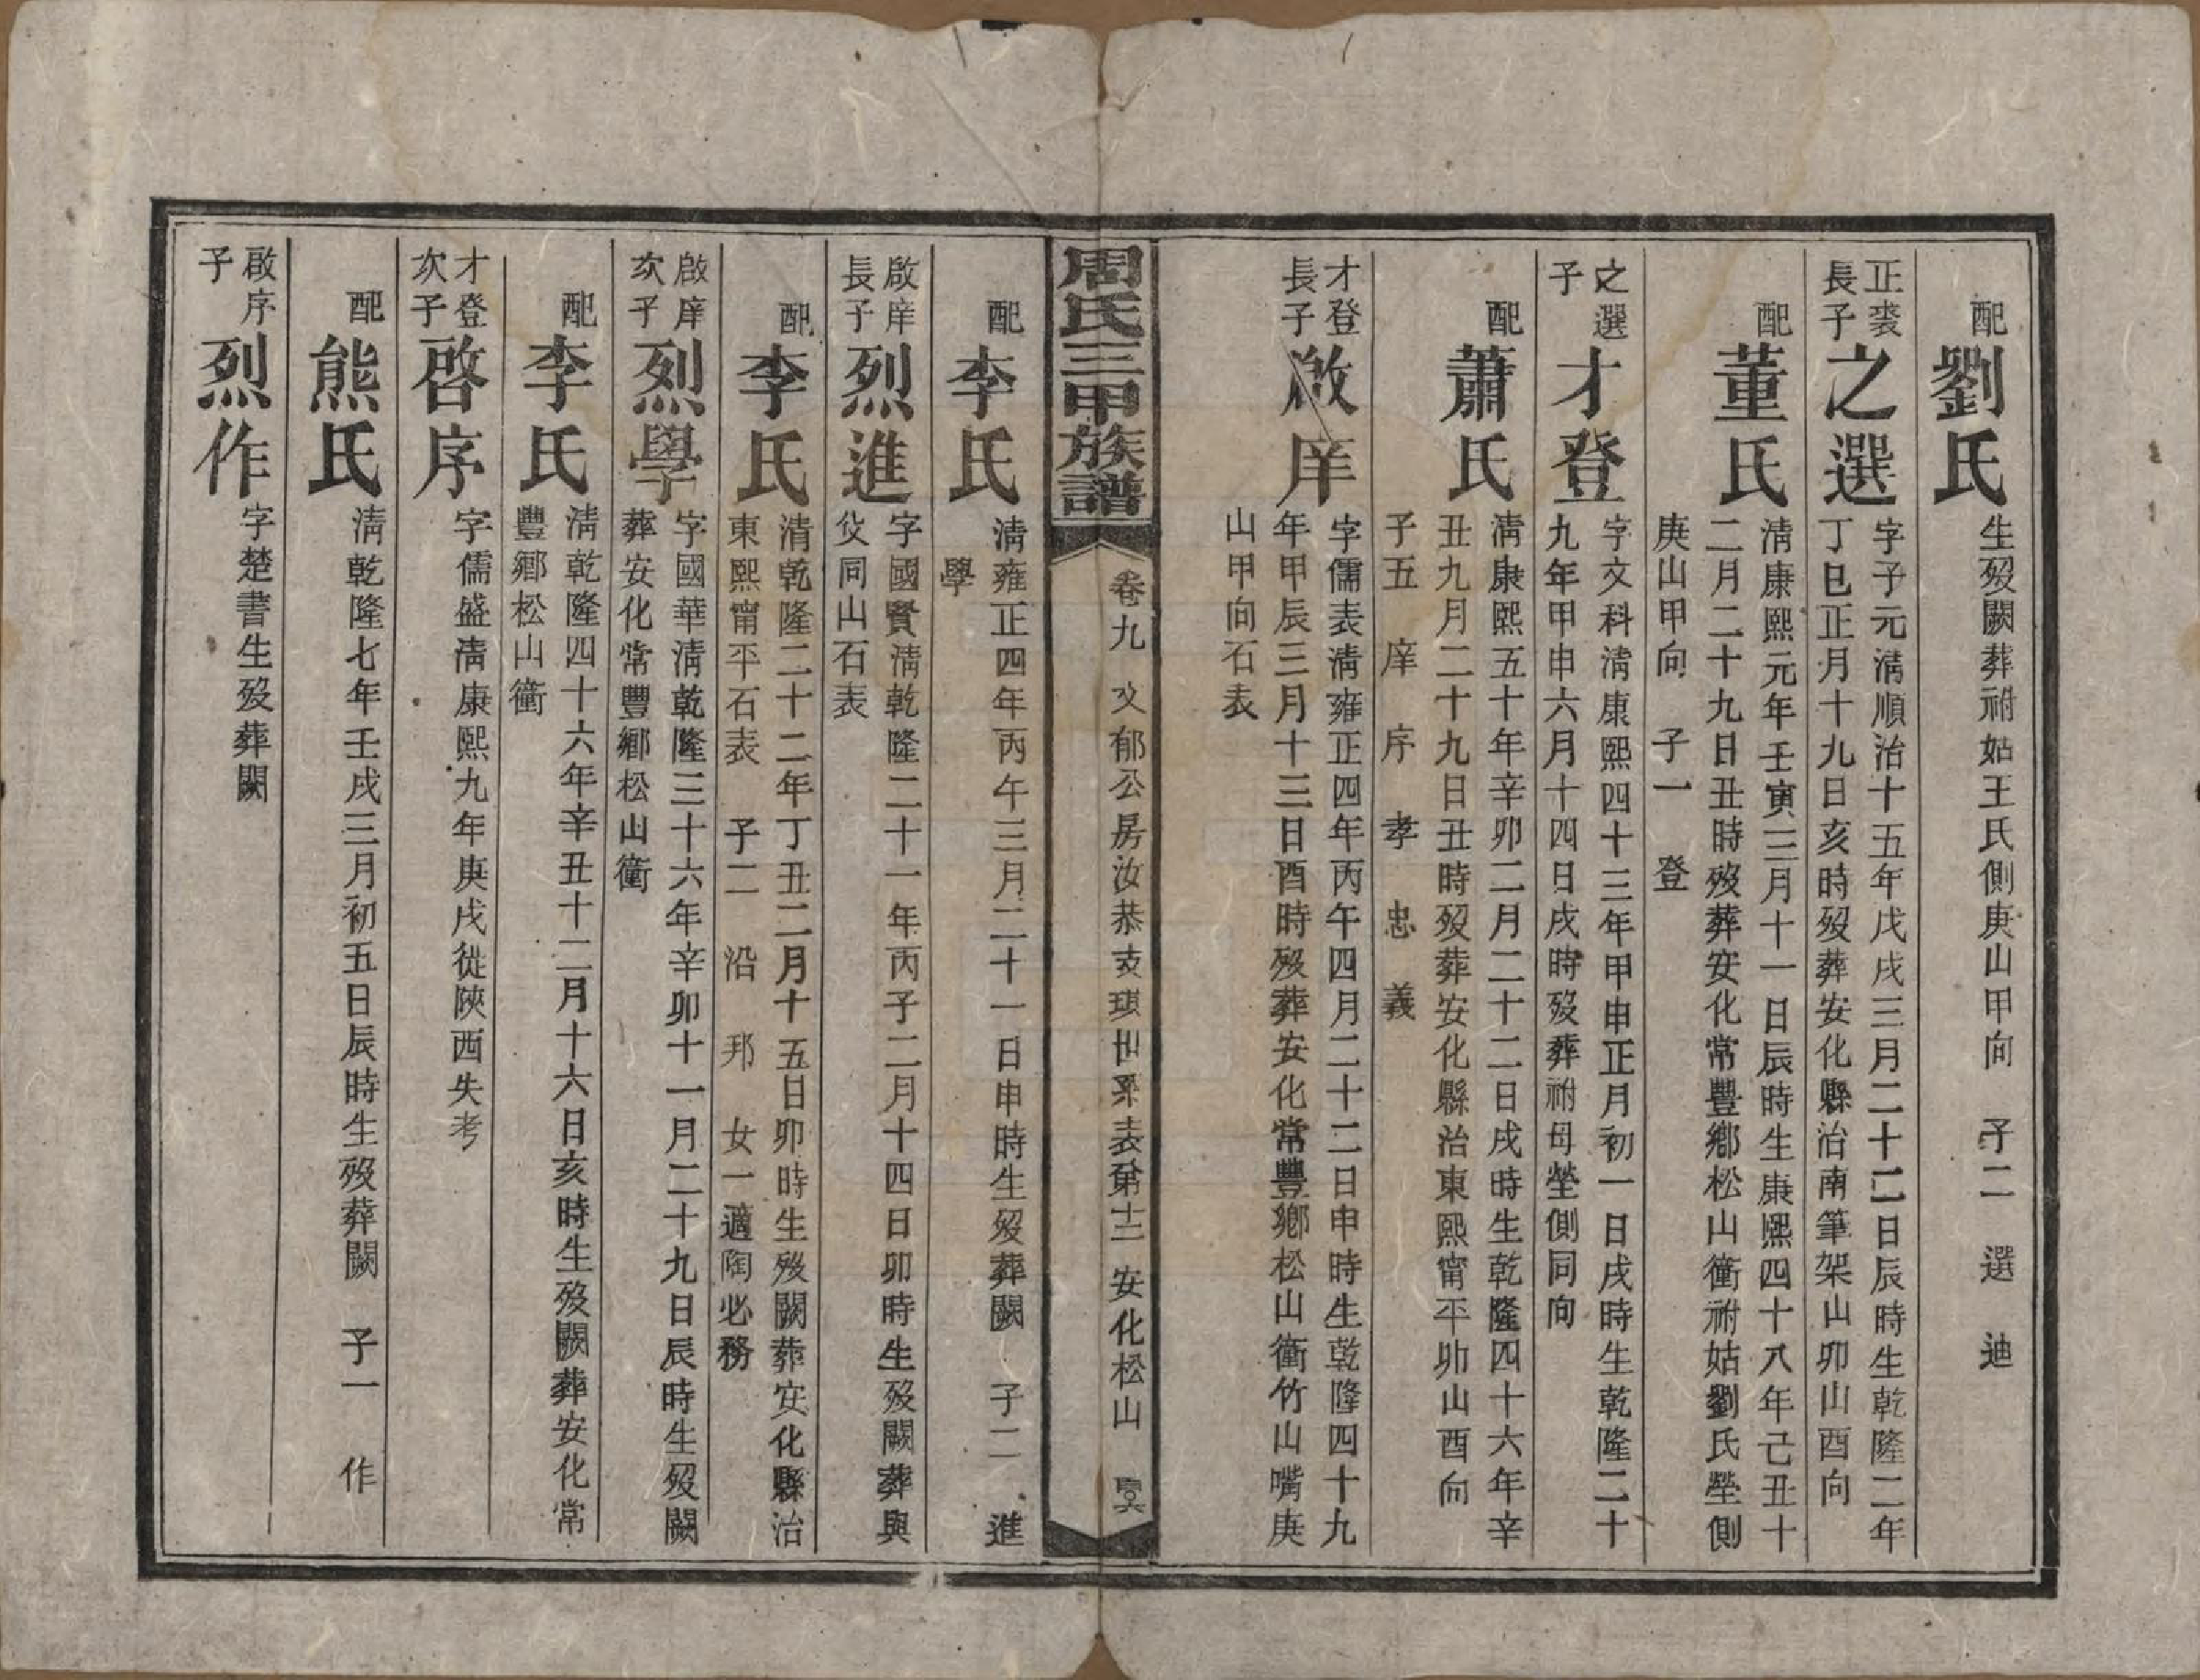 配劉氏生歿闕葬祔姑王氏側庚山甲向 子二 選 迪
正裘長子之選字子元淸順治十五年戊戌三月二十二日辰時生乾隆二年
丁巳正月十九日亥時歿葬安化縣治南筆架山卯山酉向
配董氏淸康熙元年壬寅三月十一日辰時生康熙四十八年己丑十
二月二十九日丑時歿葬安化常豐鄕松山衝祔姑劉氏塋側
庚山甲向 子一 登
之選子才登字文科淸康熙四十三年甲申正月初一日戌時生乾隆二十
九年甲申六月十四日戌時歿葬祔母塋側同向
配蕭氏淸康熙五十年辛卯二月二十二日戌時生乾隆四十六年辛
丑九月二十九日丑時歿葬安化縣治東熙甯平卯山酉向
子五 庠 序 孝 忠 義
才登長子啟庠字儒表淸雍正四年丙午四月二十二日申時生乾隆四十九
年甲辰三月十三日酉時歿葬安化常豐鄕松山衝竹山嘴庚
山甲向石表
周氏三甲族譜 卷九 文郁公房汝恭支琪世系表第十二 安化松山
配李氏淸雍正四年丙午三月二十一日申時生歿葬闕 子二 進
學
啟庠長子烈進字國賢淸乾隆二十一年丙子二月十四日卯時生歿闕葬與
父同山石表
配李氏淸乾隆二十二年丁丑二月十五日卯時生歿闕葬安化縣治
東熙甯平石表 子二 沿 邦 女一適陶必務
啟庠次子烈學字國華淸乾隆三十六年辛卯十一月二十九日辰時生歿闕
葬安化常豐鄕松山衝
配李氏淸乾隆四十六年辛丑十二月十六日亥時生歿闕葬安化常
豐鄕松山衝
才登次子啓序字儒盛淸康熙九年庚戌從陝西失考
配熊氏淸乾隆七年壬戌三月初五日辰時生歿葬闕 子一 作
啟序子烈作字楚書生歿葬闕